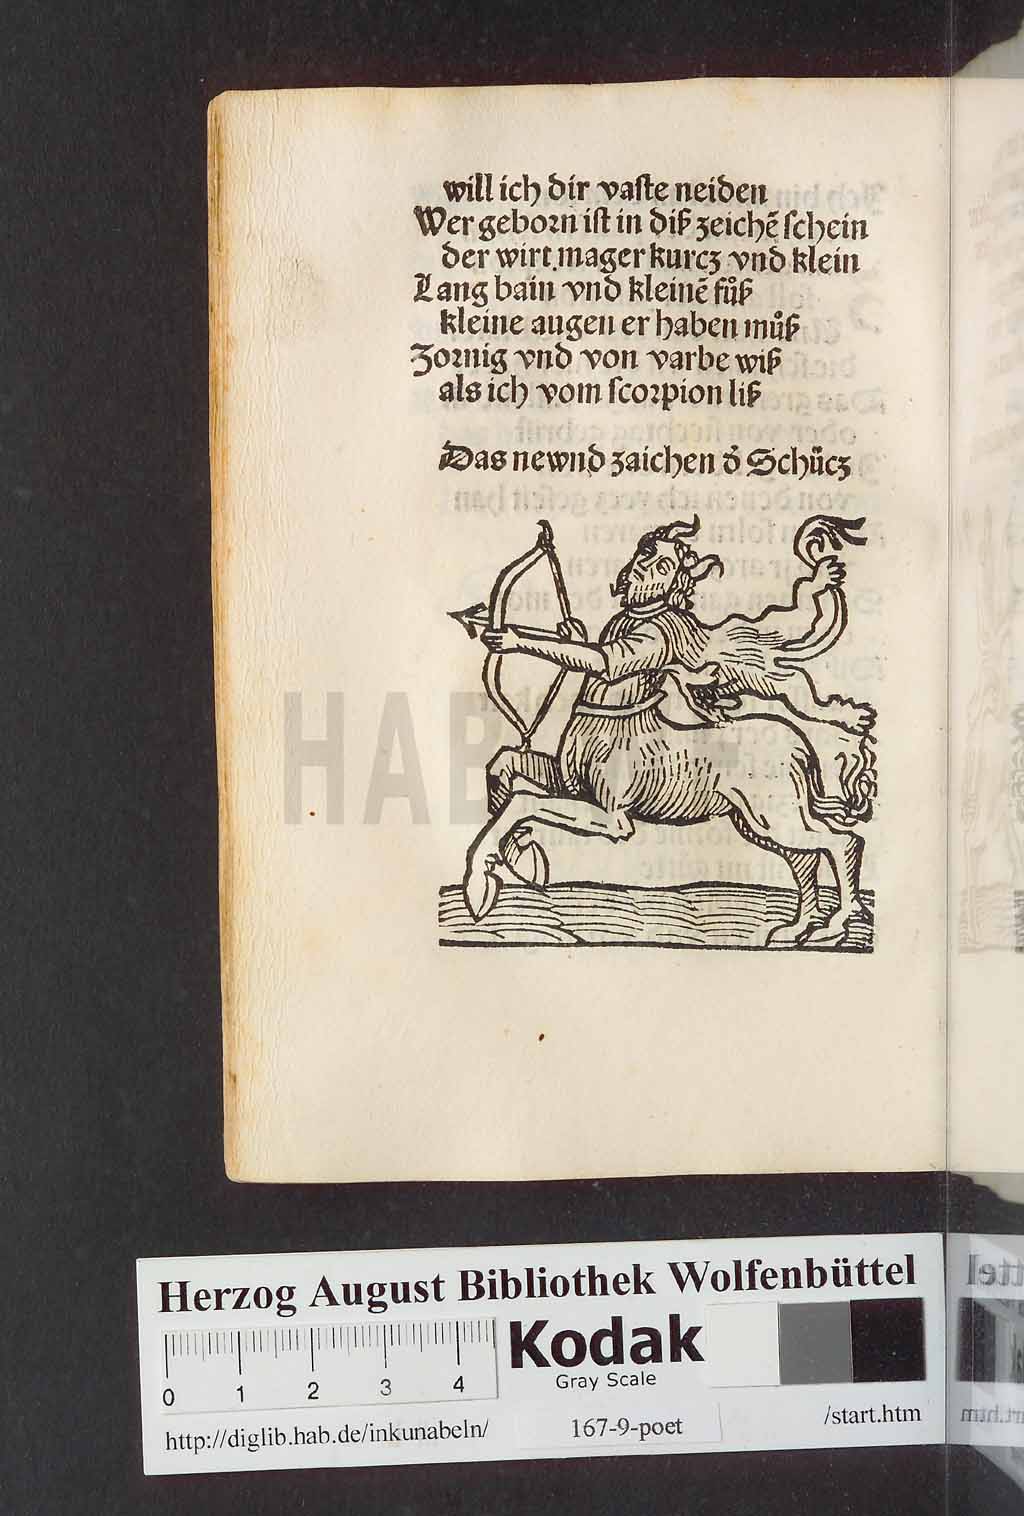 will ich dir vaſte neiden
Wer geborn iſt in diß zeichē ſchein
der wirt mager kurcz vnd klein
Lang bain vnd kleinē fůß
kleine augen er haben můß
Zornig vnd von varbe wiß
als ich vom ſcorpion liß
Das newnd zaichen d̕ Schücz
HAB
Herzog August Bibliothek Wolfenbüttel
0 1 2 3 4
Kodak
Gray Scale
http://diglib.hab.de/inkunabeln/
167-9-poet
/start.htm